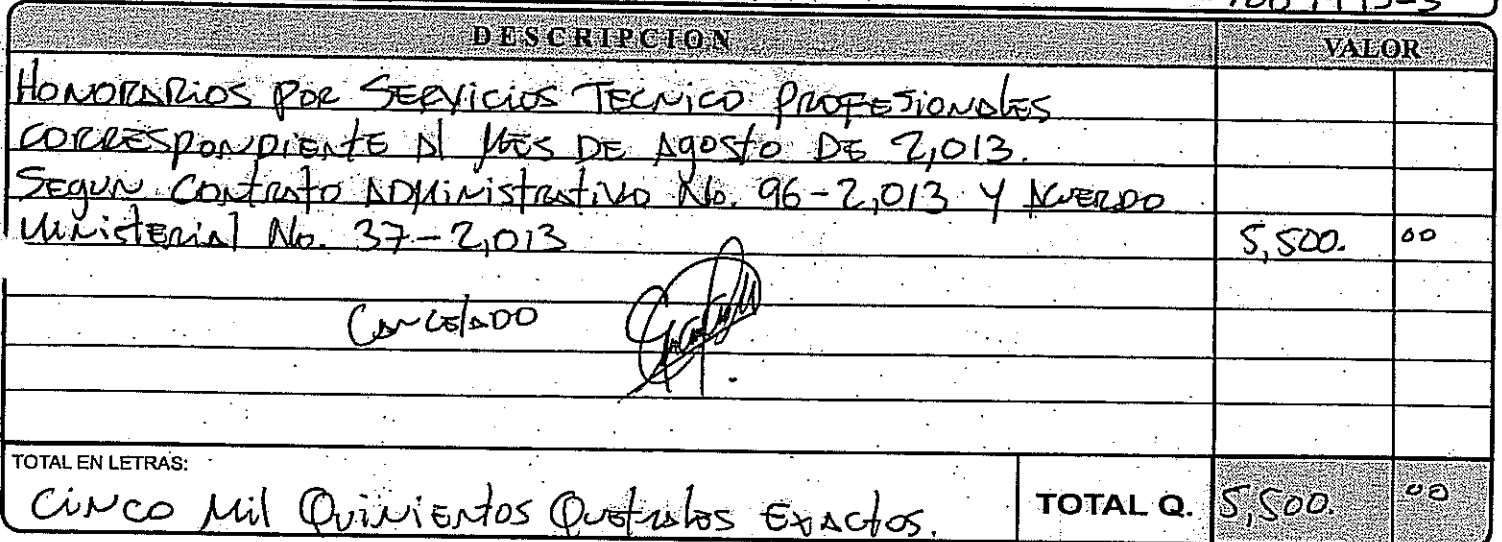 DESCRIPCION VALOR
HONORARIOS POR SERVICIOS TECNICO PROFESIONALES
CORRESPONDIENTE AL MES DE AGOSTO DE 2,013.
SEGUN CONTRATO ADMINISTRATIVO No. 96-2,013 Y ACUERDO
MINISTERIAL No. 37-2,013 5,500. 00
CANCELADO
TOTAL EN LETRAS:
CINCO Mil QUINIENTOS QUETZALES EXACTOS. TOTAL Q. 5,500. 00